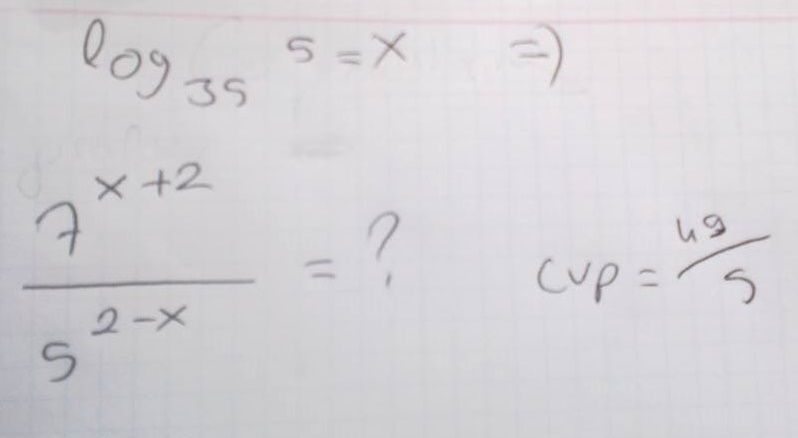 log₃₅ 5 = x ⇒
7^(x+2) / 5^(2-x) = ? cvp = 49/5